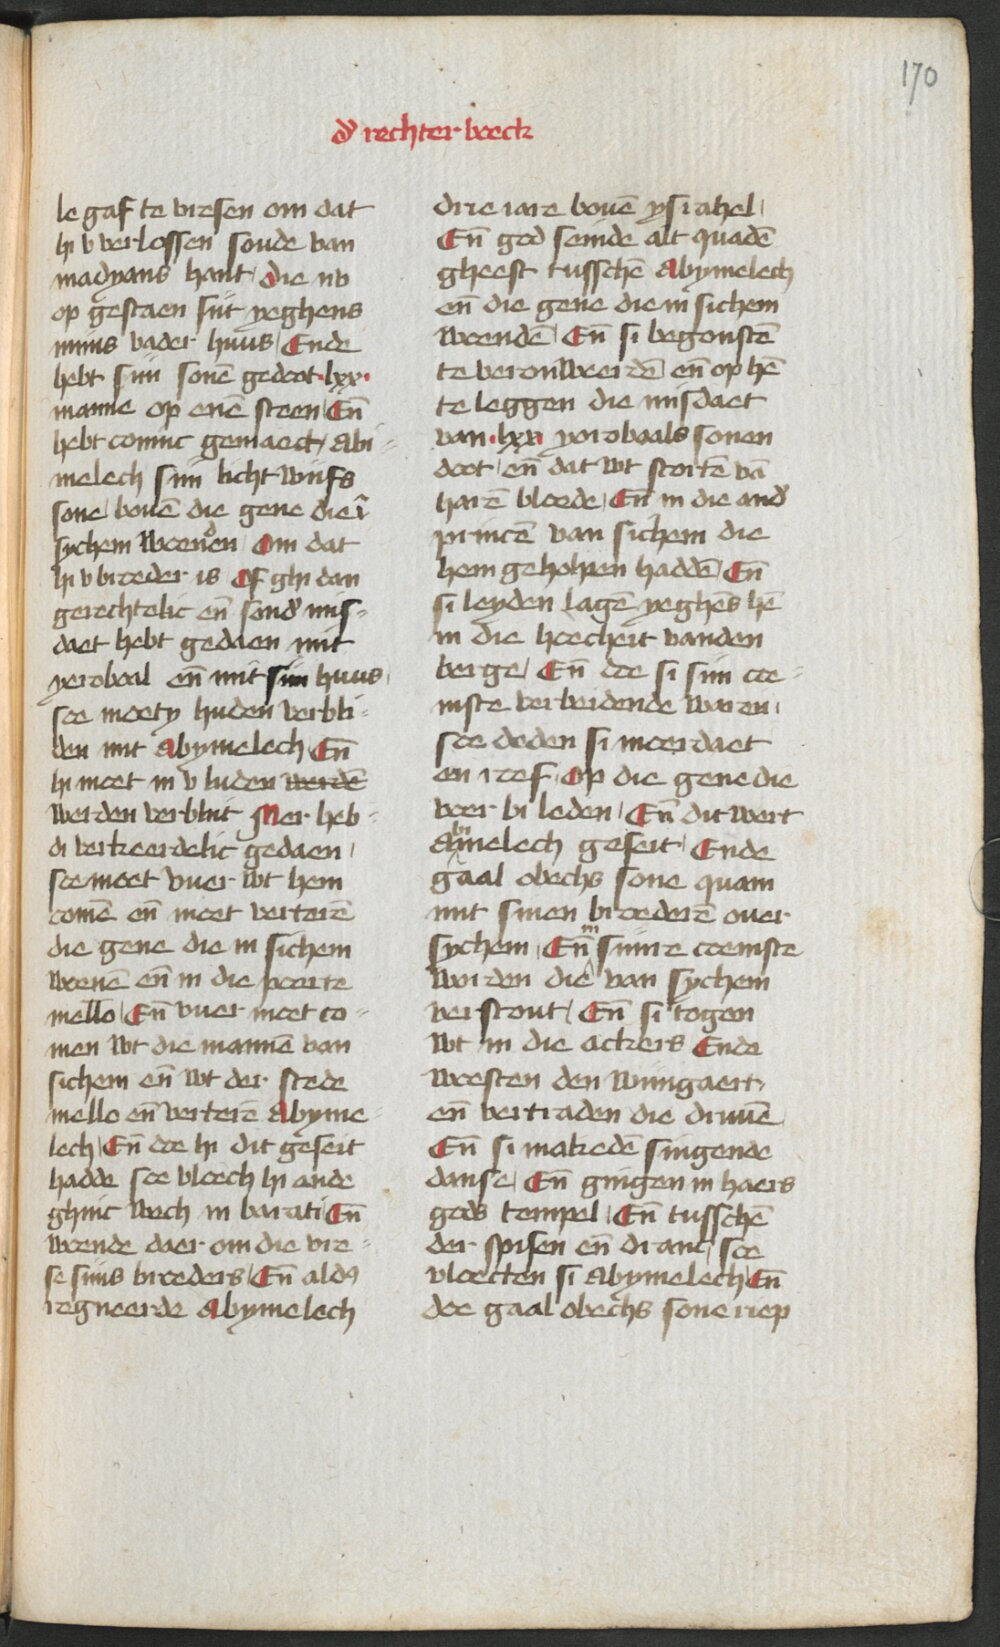 170
d' rechter boeck
le gaf te vresen om dat
hi v verlossen soude van
madyans hant / die nv
op gestaen sijt yeghens
mijns vader huus / Ende
hebt sijn sonē gedoot ·lxx·
manne op enē steen Eñ
hebt coninc gemaect / abi-
melech sijn kicht wijfs
sone / bouē die gene die ī
sychem woenden Om dat
hi v broeder is Of ghi dan
gerechtelic eñ sond' mis-
daet hebt gedaen mit
yerobaal eñ mit sijn huus /
soe moety huden verbli-
den mit Abymelech Eñ
hi moet in v luden werdē
werden verblijt Mer heb-
di verkeerdelic gedaen /
soe moet vuer wt hem
comē eñ moet verterē
die gene die in sichem
woenē eñ in die poerte
mello / Eñ vuer moet co-
men wt die mannē van
sichem eñ wt der stede
mello eñ verterē Abyme-
lech / Eñ doe hi dit geseit
hadde soe vloech hi ande
ghinc wech in barati Eñ
woende daer om die vre-
se sijns broeders / Eñ aldꝰ
regneerde Abymelech
drie iare bouē ysrahel /
Eñ god seinde alt quadē
gheest tusschē Abymelech
eñ die gene die in sichem
woendē / Eñ si begonstē
te veronweerdē eñ op hē
te leggen die misdaet
van ·lxx· yorobaals sonen
doot / eñ dat wt stortē vā
harē bloede / Eñ in die and'
princē van sichem die
hem geholpen haddē Eñ
si leyden lagē yeghēs hē
in die hoecheit vanden
berge / Eñ doe si sijn coe-
mste verbeidende waren /
soe deden si moerdaet
en roef / Op die gene die
voer bi leden / Eñ dit wert
abimelech geseit / Ende
gaal obechs sone quam
mit sinen broederē ouer
sychem / Eñ in sijnre coemste
worden die van sychem
verstout / Eñ si togen
wt in die ackers Ende
woesten den wijngaert /
eñ vertraden die druuē
Eñ si makedē singende
danse / Eñ gingen in haers
gods tempel / Eñ tusschē
der spisen eñ dranc / soe
vloecten si Abymelech / Eñ
doe gaal obechs sone riep